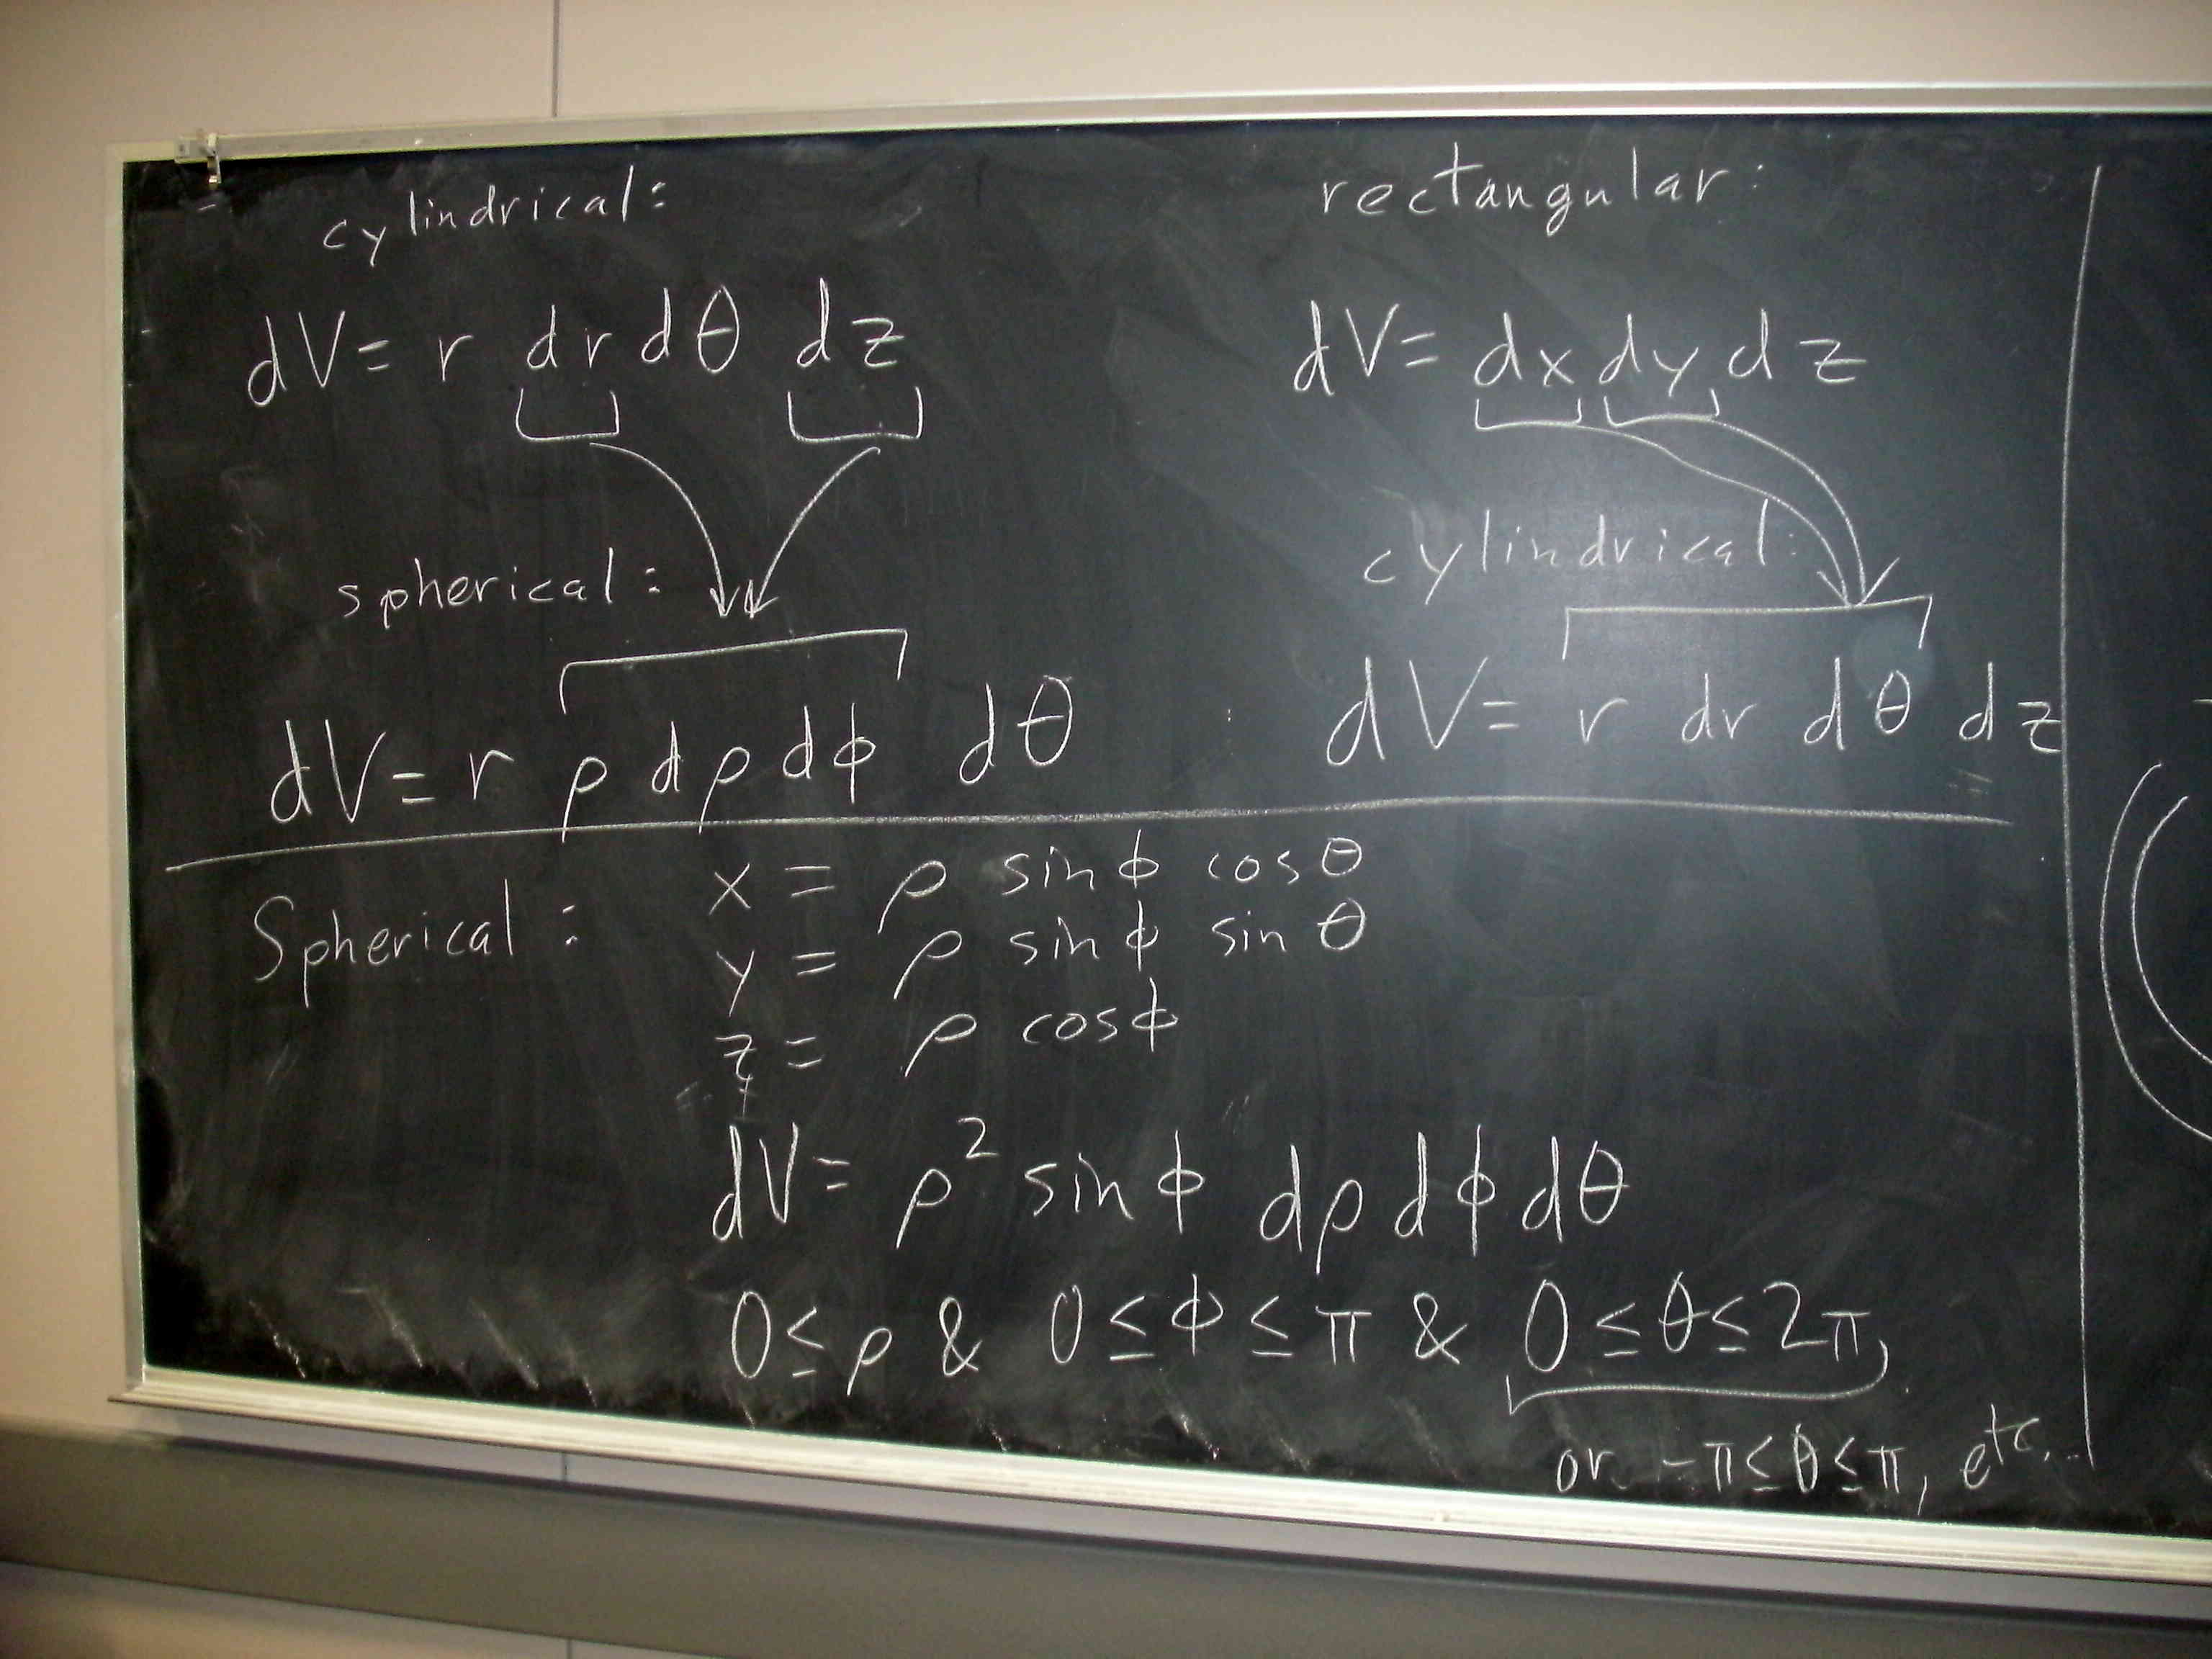 cylindrical:
dV = r dr dθ dz
spherical:
dV = r ρ dρ dϕ dθ
rectangular:
dV = dx dy dz
cylindrical:
dV = r dr dθ dz
Spherical: x = ρ sinϕ cosθ
y = ρ sinϕ sinθ
z = ρ cosϕ
dV = ρ² sinϕ dρ dϕ dθ
0 ≤ ρ & 0 ≤ ϕ ≤ π & 0 ≤ θ ≤ 2π,
or -π ≤ θ ≤ π, etc...